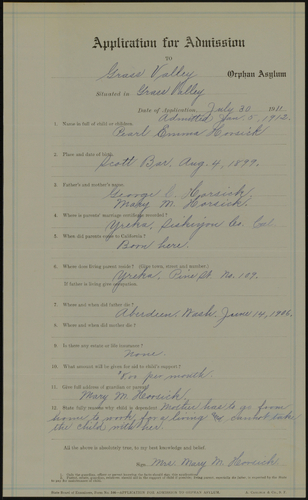 Application for Admission
TO
Grass Valley Orphan Asylum
Situated in Grass Valley
Date of Application, July 30 1911
Admitted Jan 5, 1912.
1. Name in full of child or children.
Pearl Emma Horsick
2. Place and date of birth.
Scott Bar, Aug. 4, 1899.
3. Father's and mother's name.
George C. Horsick
Mary M. Horsick.
4. Where is parents' marriage certificate recorded?
Yreka, Siskiyou Co. Cal.
5. When did parents come to California?
Born here.
6. Where does living parent reside? (Give town, street and number)
Yreka, Pine St. No. 109.
If father is living give occupation.
7. Where and when did father die?
Aberdeen Wash. June 14, 1906.
8. Where and when did mother die?
9. Is there any estate of life insurance?
None.
10. What amount will be given for aid to child's support?
per month
11. Give full address of guardian or parent.
Mary M. Horsick,
12. State fully reasons why child is dependent. Mother has to go from
home to work, for a living & cannot take
the child with her.
All the above is absolutely true, to my best knowledge and belief.
Sign Mrs. Mary M. Horsick